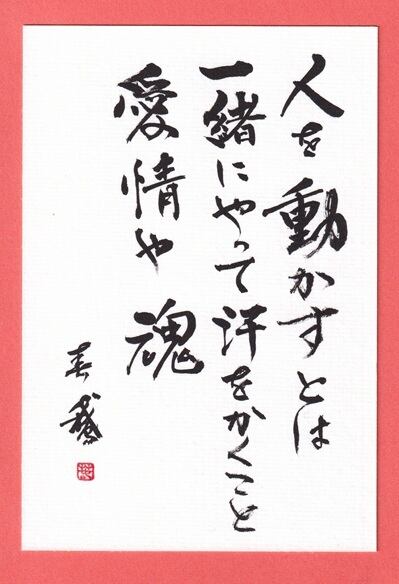 人を動かすとは
一緒にやって汗をかくこと
愛情や魂